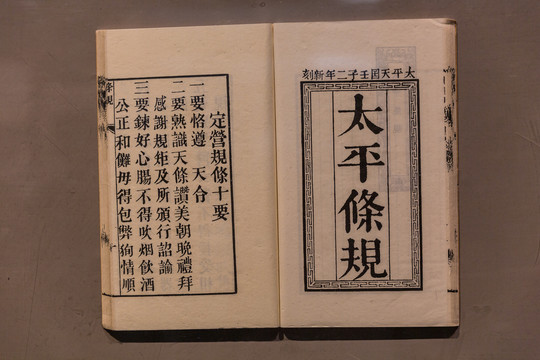 太平天囯壬子二年新刻
太平條規
定營規條十要
一要恪遵 天令
二要熟識天條讚美朝晚禮拜
感謝規矩及所頒行詔諭
三要鍊好心腸不得吹烟飲酒
公正和儺毋得包弊狥情順
條規